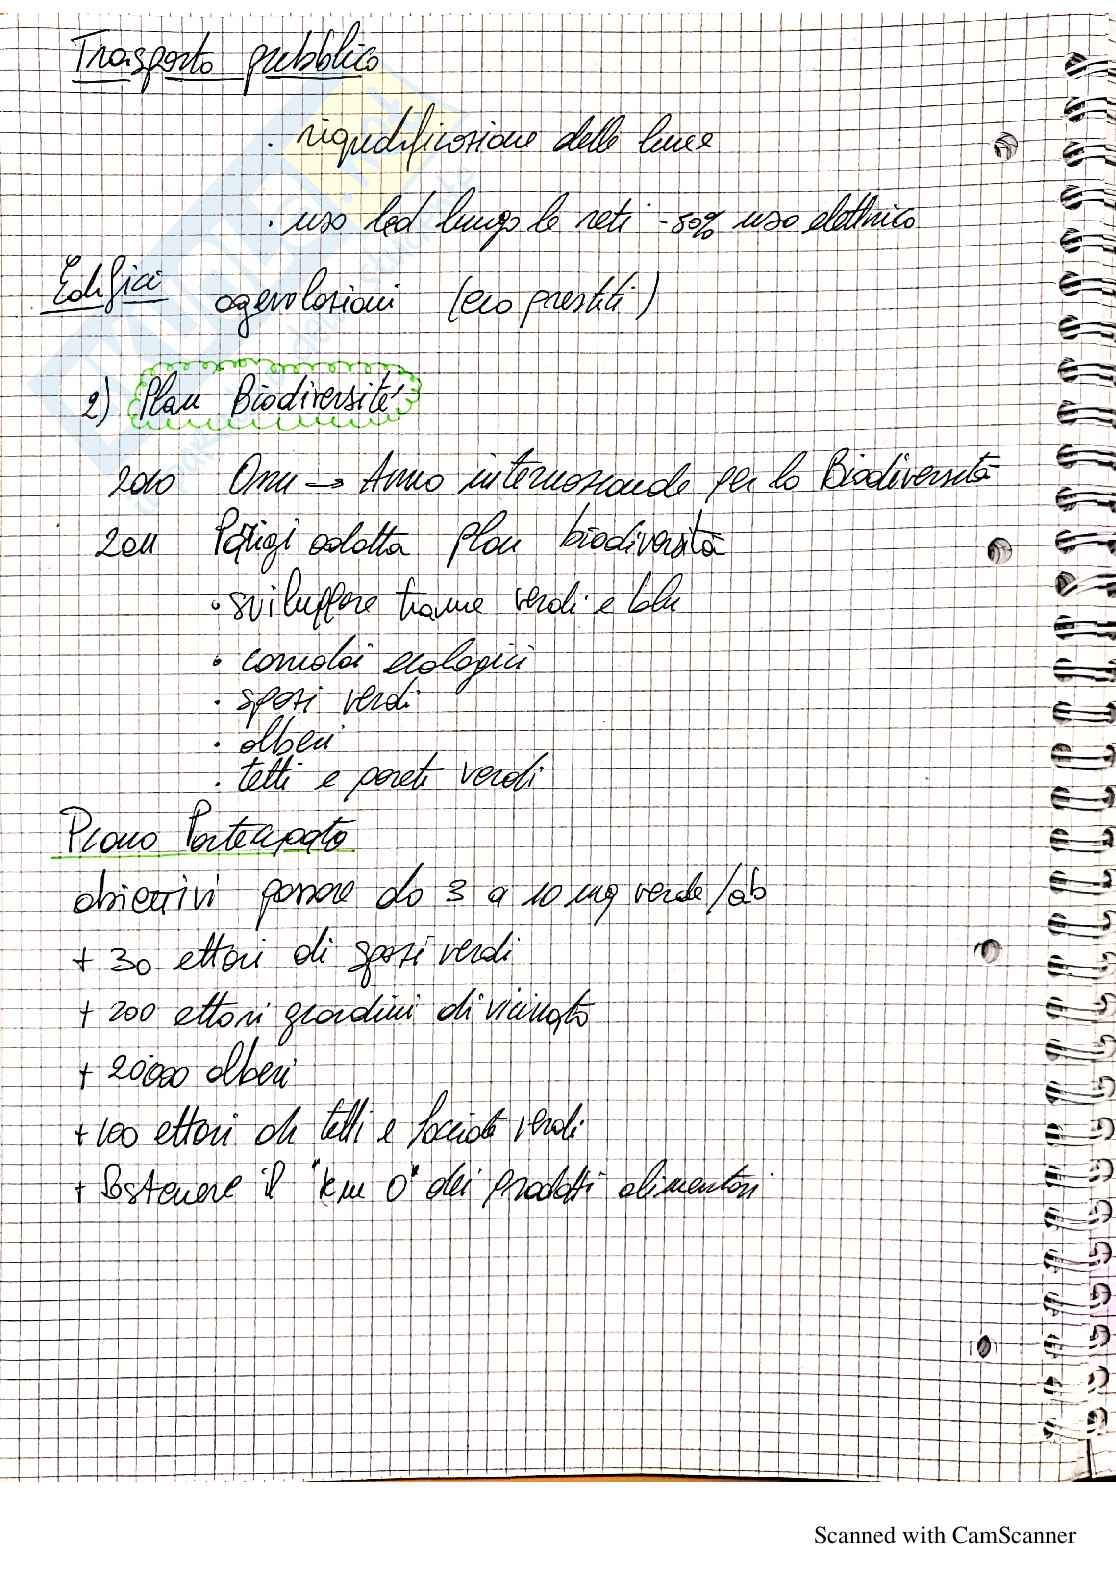 Trasporto pubblico
· riqualificazione delle linee
· uso led lungo le reti -50% uso elettrico
Edifici agevolazioni (eco prestiti)
2) Plan Biodiversité
2010 Onu → Anno internazionale per la Biodiversità
2011 Parigi adotta plan biodiversità
· sviluppare trame verdi e blu
· corridoi ecologici
· spazi verdi
· alberi
· tetti e pareti verdi
Piano Partecipato
obiettivi passare da 3 a 10 mq verde/ab
+ 30 ettari di spazi verdi
+ 200 ettari giardini di vicinato
+ 20000 alberi
+ 100 ettari di tetti e facciate verdi
+ Sostenere il "km 0" dei prodotti alimentari
Scanned with CamScanner